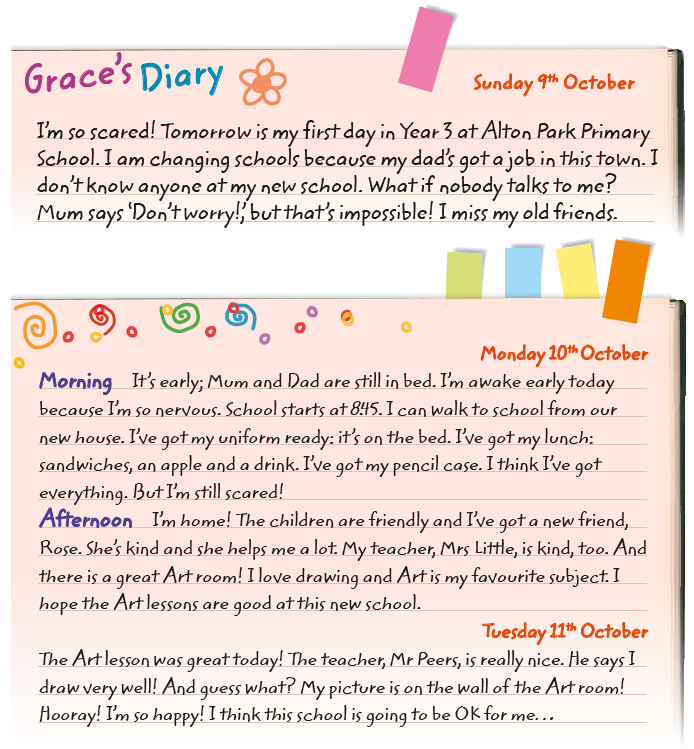 Grace's Diary
Sunday 9th October
I'm so scared! Tomorrow is my first day in Year 3 at Alton Park Primary
School. I am changing schools because my dad's got a job in this town. I
don't know anyone at my new school. What if nobody talks to me?
Mum says 'Don't worry!,' but that's impossible! I miss my old friends.
Monday 10th October
Morning It's early; Mum and Dad are still in bed. I'm awake early today
because I'm so nervous. School starts at 8.45. I can walk to school from our
new house. I've got my uniform ready: it's on the bed. I've got my lunch:
sandwiches, an apple and a drink. I've got my pencil case. I think I've got
everything. But I'm still scared!
Afternoon I'm home! The children are friendly and I've got a new friend,
Rose. She's kind and she helps me a lot. My teacher, Mrs Little, is kind, too. And
there is a great Art room! I love drawing and Art is my favourite subject. I
hope the Art lessons are good at this new school.
Tuesday 11th October
The Art lesson was great today! The teacher, Mr Peers, is really nice. He says I
draw very well! And guess what? My picture is on the wall of the Art room!
Hooray! I'm so happy! I think this school is going to be OK for me...